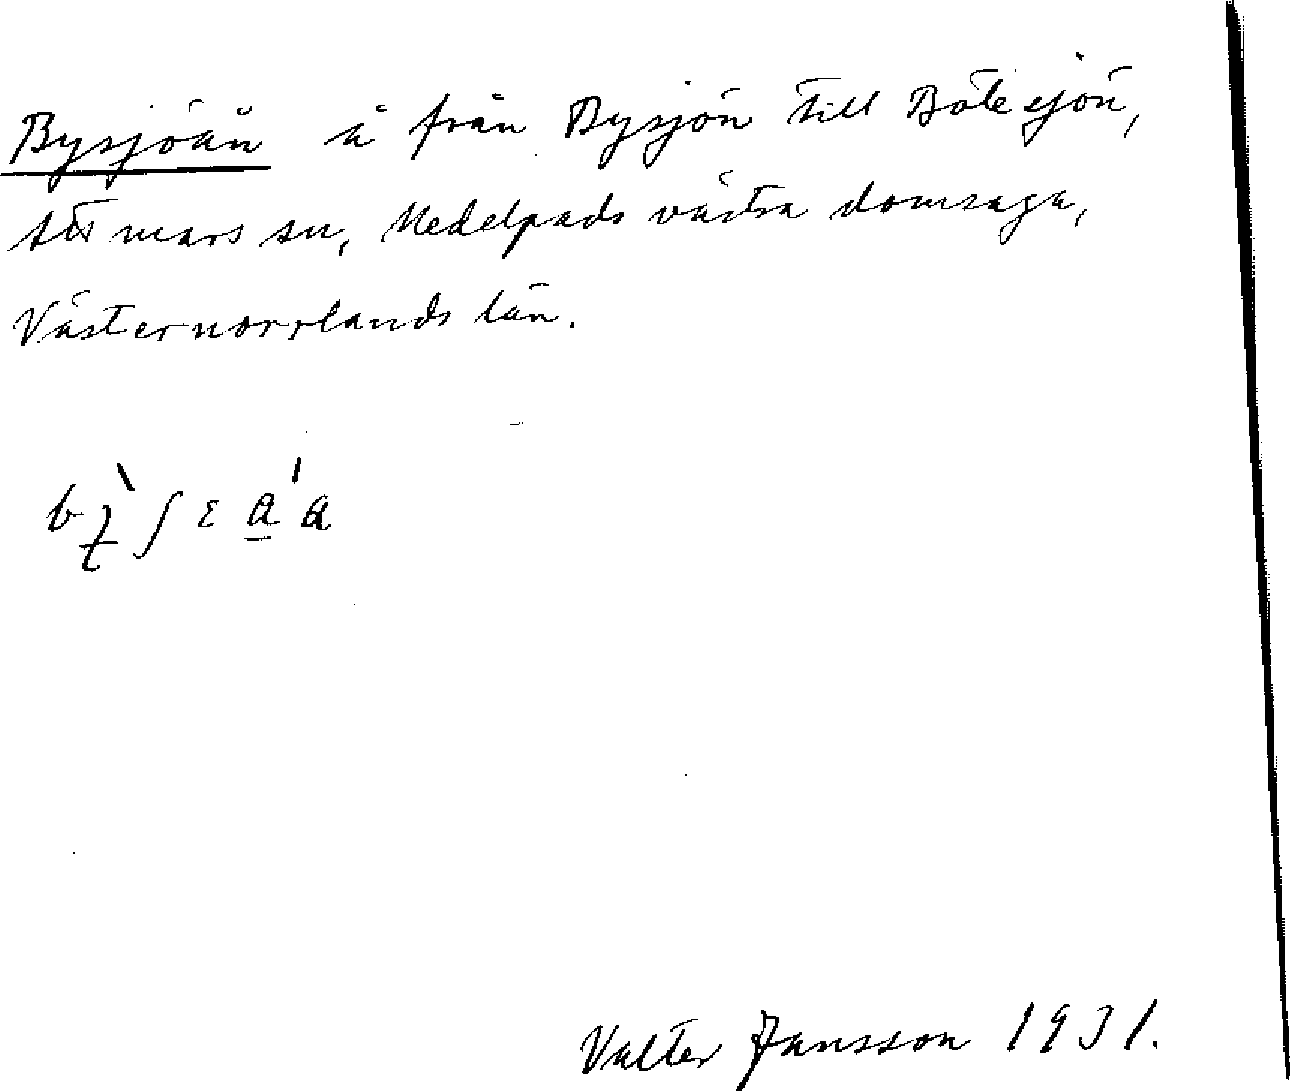 Bysjöån å från Bysjön till Bötesjön,
Attmars sn, Medelpads västra domsaga,
Västernorrlands län.
Valter Jansson 1931.